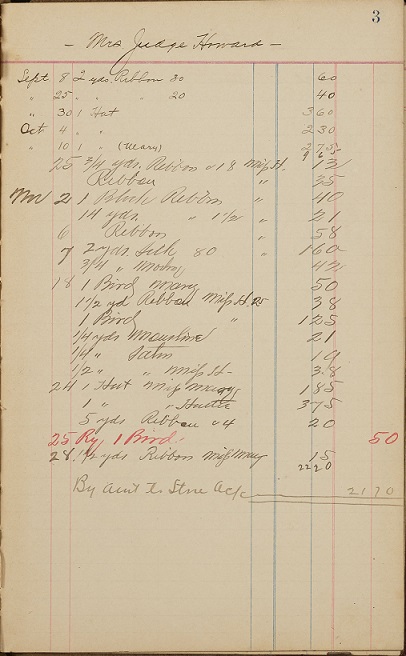 3
- Mrs Judge Howard -
Sept 8 2 yds Ribbon 30 60
" 25 " " " 20 40
" 30 1 Hat 3 60
Oct 4 " " 2 30
" 10 1 " (Mary) 2 75
25 3/4 yds. Ribbon @ 18 Miss H. 12
Ribbon " 35
Nov 2 1 Ribbon " 40
14 yds. " 1 1/2 " 21
6 Ribbon " 58
7 2 yds. Silk 80 " 1 60
3/4 " 42
18 1 Bird Mary 50
1 1/2 yd Ribbon Miss H. 25 38
1 Bird " 1 25
1/4 yd 21
1/4 " Satin 19
1/2 " " Miss H- 38
24 1 Hat Miss Mary 1 85
1 " " Hattie 3 75
5 yds Ribbon @ 4 20
25 1 Bird. 50
28 1 1/2 yds Ribbon Miss Mary 15
22 20
By Amt to Store A/c 21 70